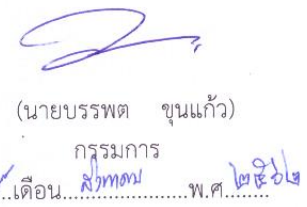 (นายบรรพต ขุนแก้ว)
กรรมการ
..เดือน..สิงหาคม..พ.ศ.๒๕๖๒..